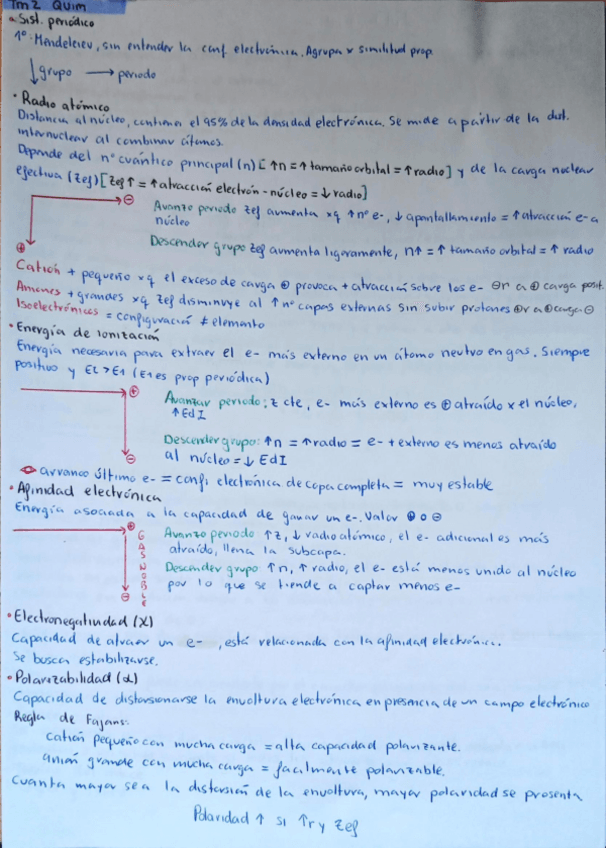 Tm 2 Quim
• Sist. periódico
1º: Mendeleiev, sin entender la conf electrónica. Agrupa x similitud prop
↓grupo → periodo
• Radio atómico
Distancia al núcleo, contiene el 95% de la densidad electrónica. Se mide a partir de la dist.
internuclear al combinar átomos.
Depende del nº cuántico principal (n) [↑n = ↑ tamaño orbital = ↑ radio] y de la carga nuclear
efectiva (Zef) [Zef ↑ = ↑ atracción electrón - núcleo = ↓ radio]
⊖
Avanzo periodo Zef aumenta xq ↑ nº e-, ↓ apantallamiento = ↑ atracción e- a
núcleo
Descender grupo Zef aumenta ligeramente, n↑ = ↑ tamaño orbital = ↑ radio
⊕
Catión + pequeño xq el exceso de carga ⊕ provoca + atracción sobre los e- ⊖r a ⊕ carga posit.
Aniones + grandes xq Zef disminuye al ↑ nº capas externas sin subir protones ⊕r a ⊕carga ⊖
Isoelectrónicos = configuración ≠ elemento
• Energía de ionización
Energía necesaria para extraer el e- más externo en un átomo neutro en gas. Siempre
positivo y E2 > E1 (E1 es prop periódica)
⊕
Avanzar periodo: z cte, e- más externo es ⊕ atraído x el núcleo,
↑ EdI
Descender grupo: ↑n = ↑radio = e- + externo es menos atraído
al núcleo = ↓ EdI
⊖
arranco último e- = confi electrónica de capa completa = muy estable
• Afinidad electrónica
Energía asociada a la capacidad de ganar un e-. Valor ⊕ o ⊖
⊕
GAS NOBLE
Avanzo periodo ↑z, ↓ radio atómico, el e- adicional es más
atraído, llena la subcapa.
Descender grupo: ↑n, ↑ radio, el e- está menos unido al núcleo
⊖
por lo que se tiende a captar menos e-
• Electronegatividad (X)
Capacidad de atraer un e-, está relacionada con la afinidad electrónic.
Se busca estabilizarse.
• Polarizabilidad (α)
Capacidad de distorsionarse la envoltura electrónica en presencia de un campo electrónico
Regla de Fajans:
catión pequeño con mucha carga = alta capacidad polarizante.
anión grande con mucha carga = facilmente polarizable.
Cuanta mayor sea la distorsión de la envoltura, mayor polaridad se presenta
Polaridad ↑ si ↑r y Zef